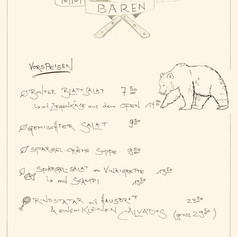 BÄREN
VORSPEISEN
BUNTER BLATTSALAT 7.50
UND ZIEGENKÄSE AUS DEM OFEN 14
GEMISCHTER SALAT 9.50
SPARGEL-CRÈME SUPPE 9.50
SPARGEL-SALAT AN VINAIGRETTE 13.50
UND SCAMPI 19.50
RINDSTATAR MIT HAUSBROT
& EINEM KLEINEN CALVADOS (GROSS 29.50)